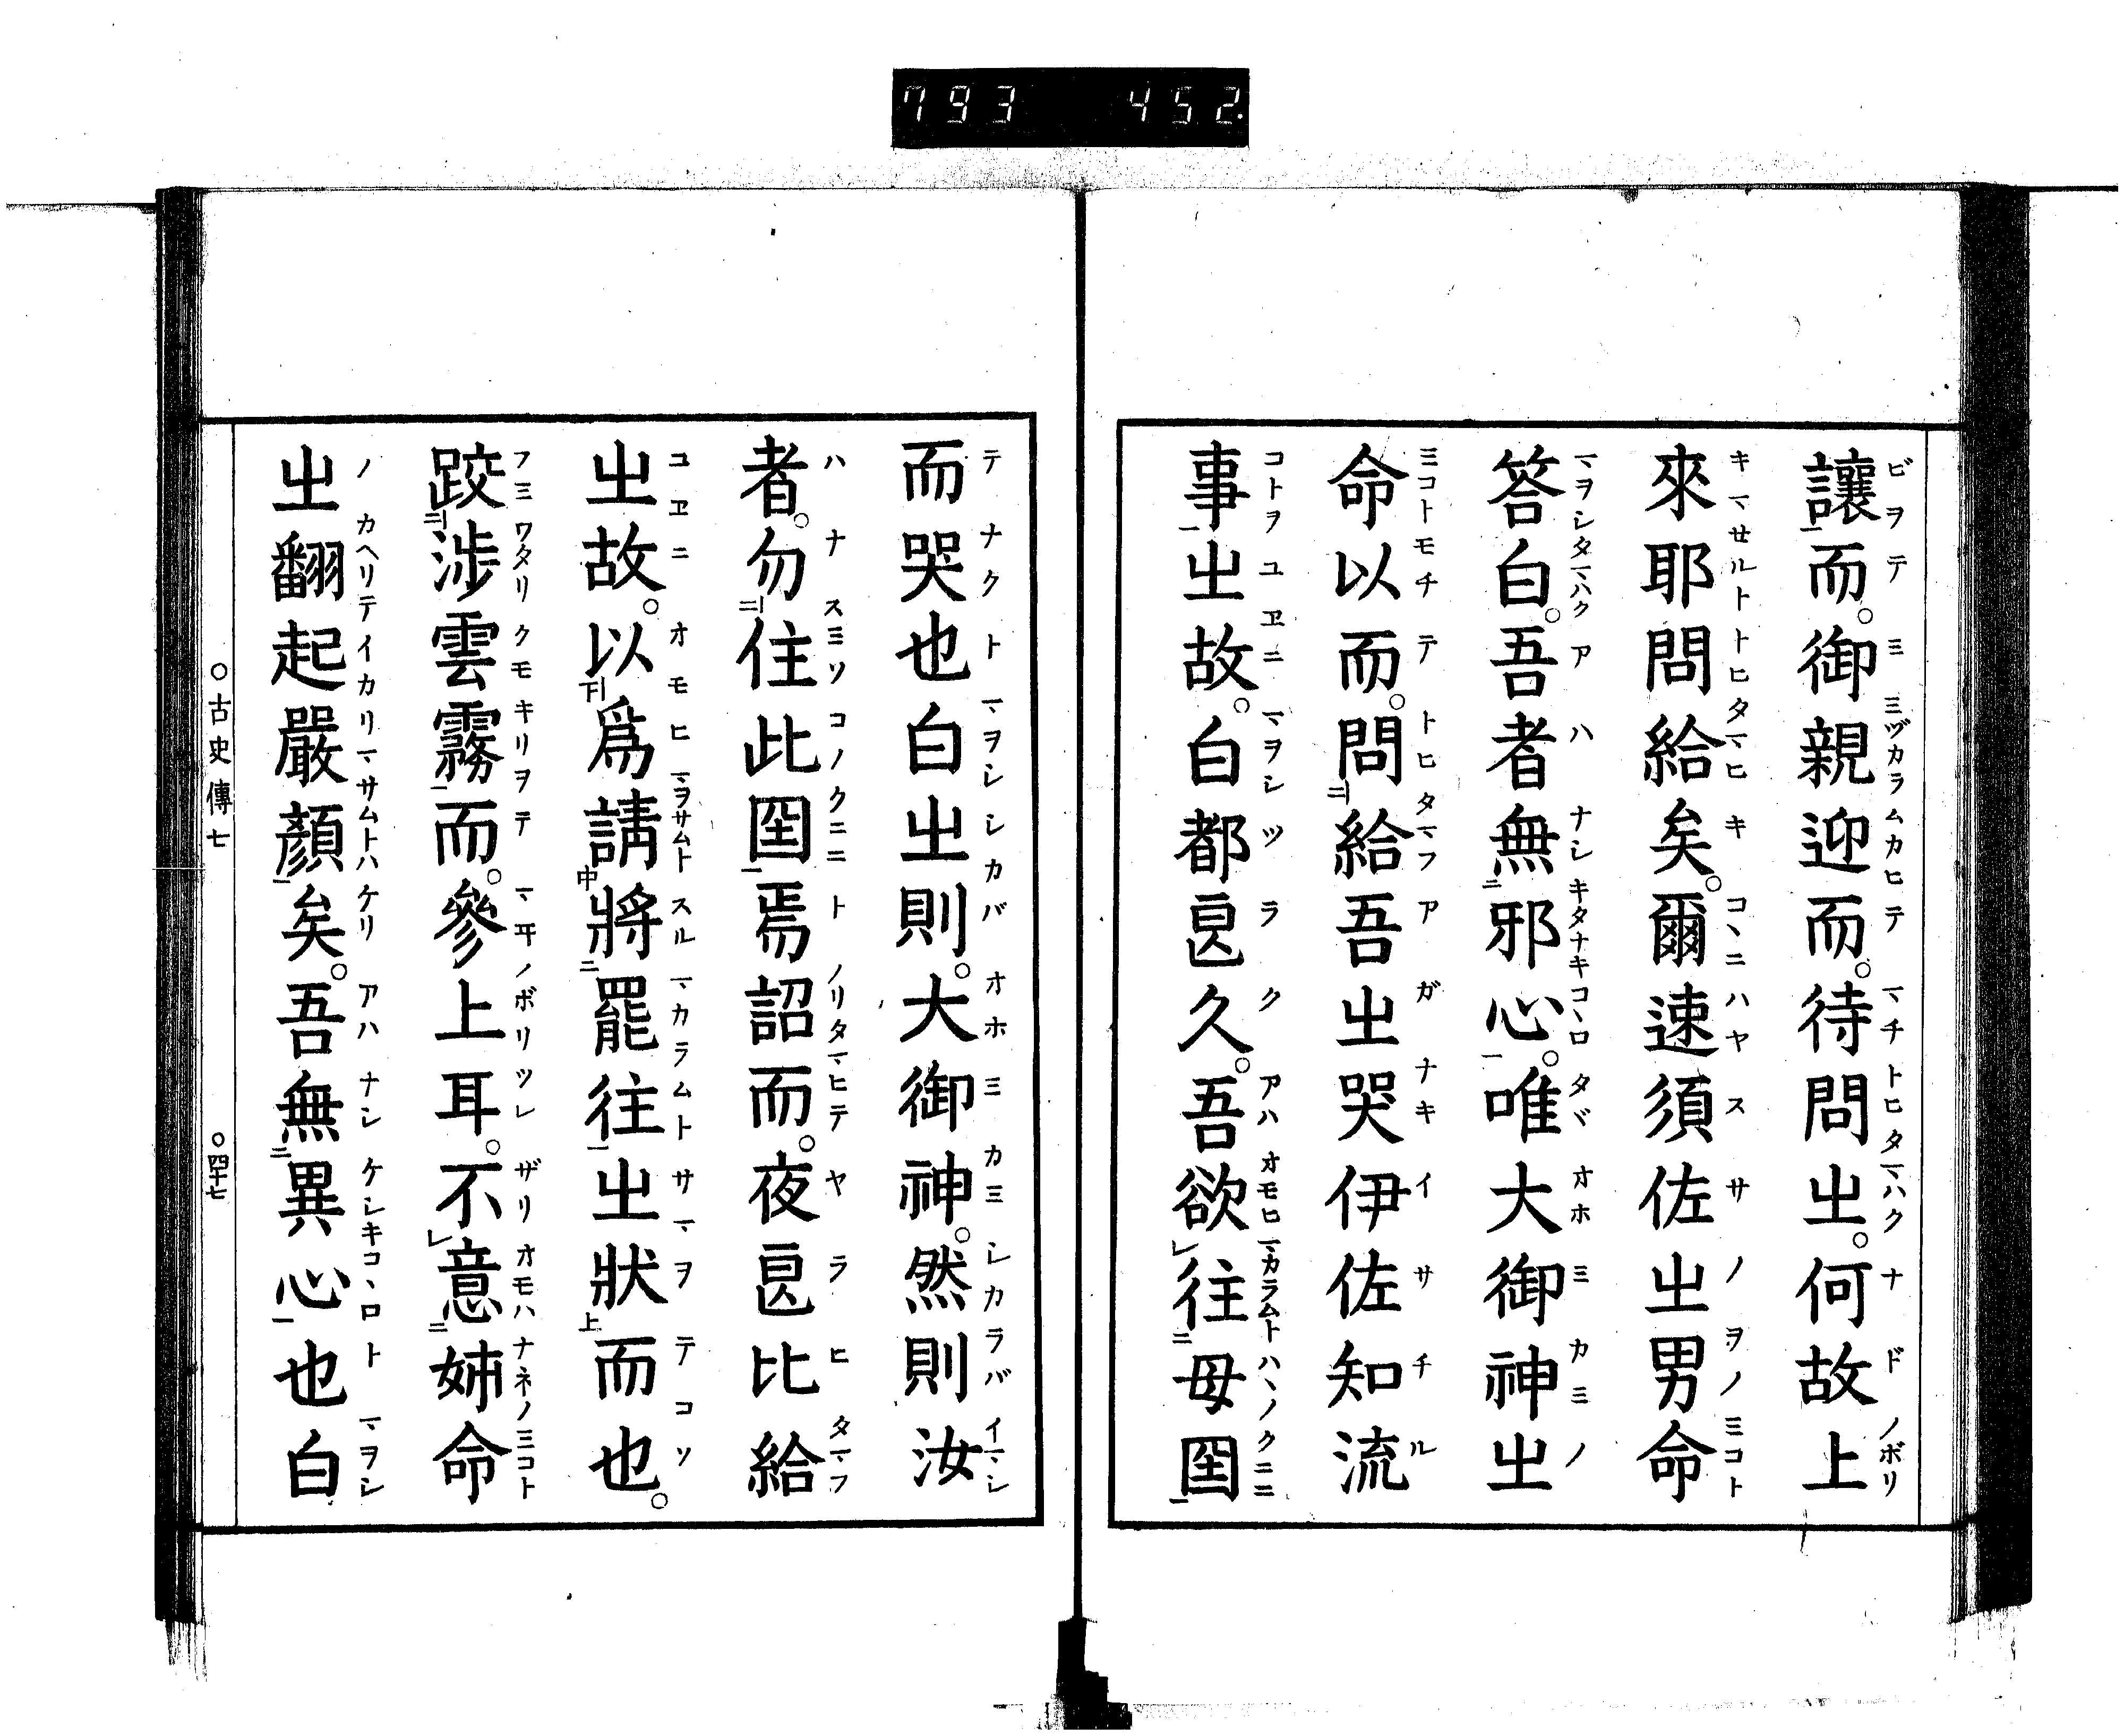 793 452.
讓而。御親迎而。待問㞢。何故上
來耶問給矣。爾速須佐㞢男命
答白。吾者無邪心。唯大御神㞢
命以而。問給吾㞢哭伊佐知流
事㞢故。白都良久。吾欲往母国
而哭也白㞢則。大御神。然則汝
者。勿住此国焉詔而。夜良比給
㞢故。以爲請將罷往㞢狀而也。
跤涉雲霧而。參上耳。不意姉命
㞢翻起嚴顏矣。吾無異心也白
○古史傳七 ○四十七